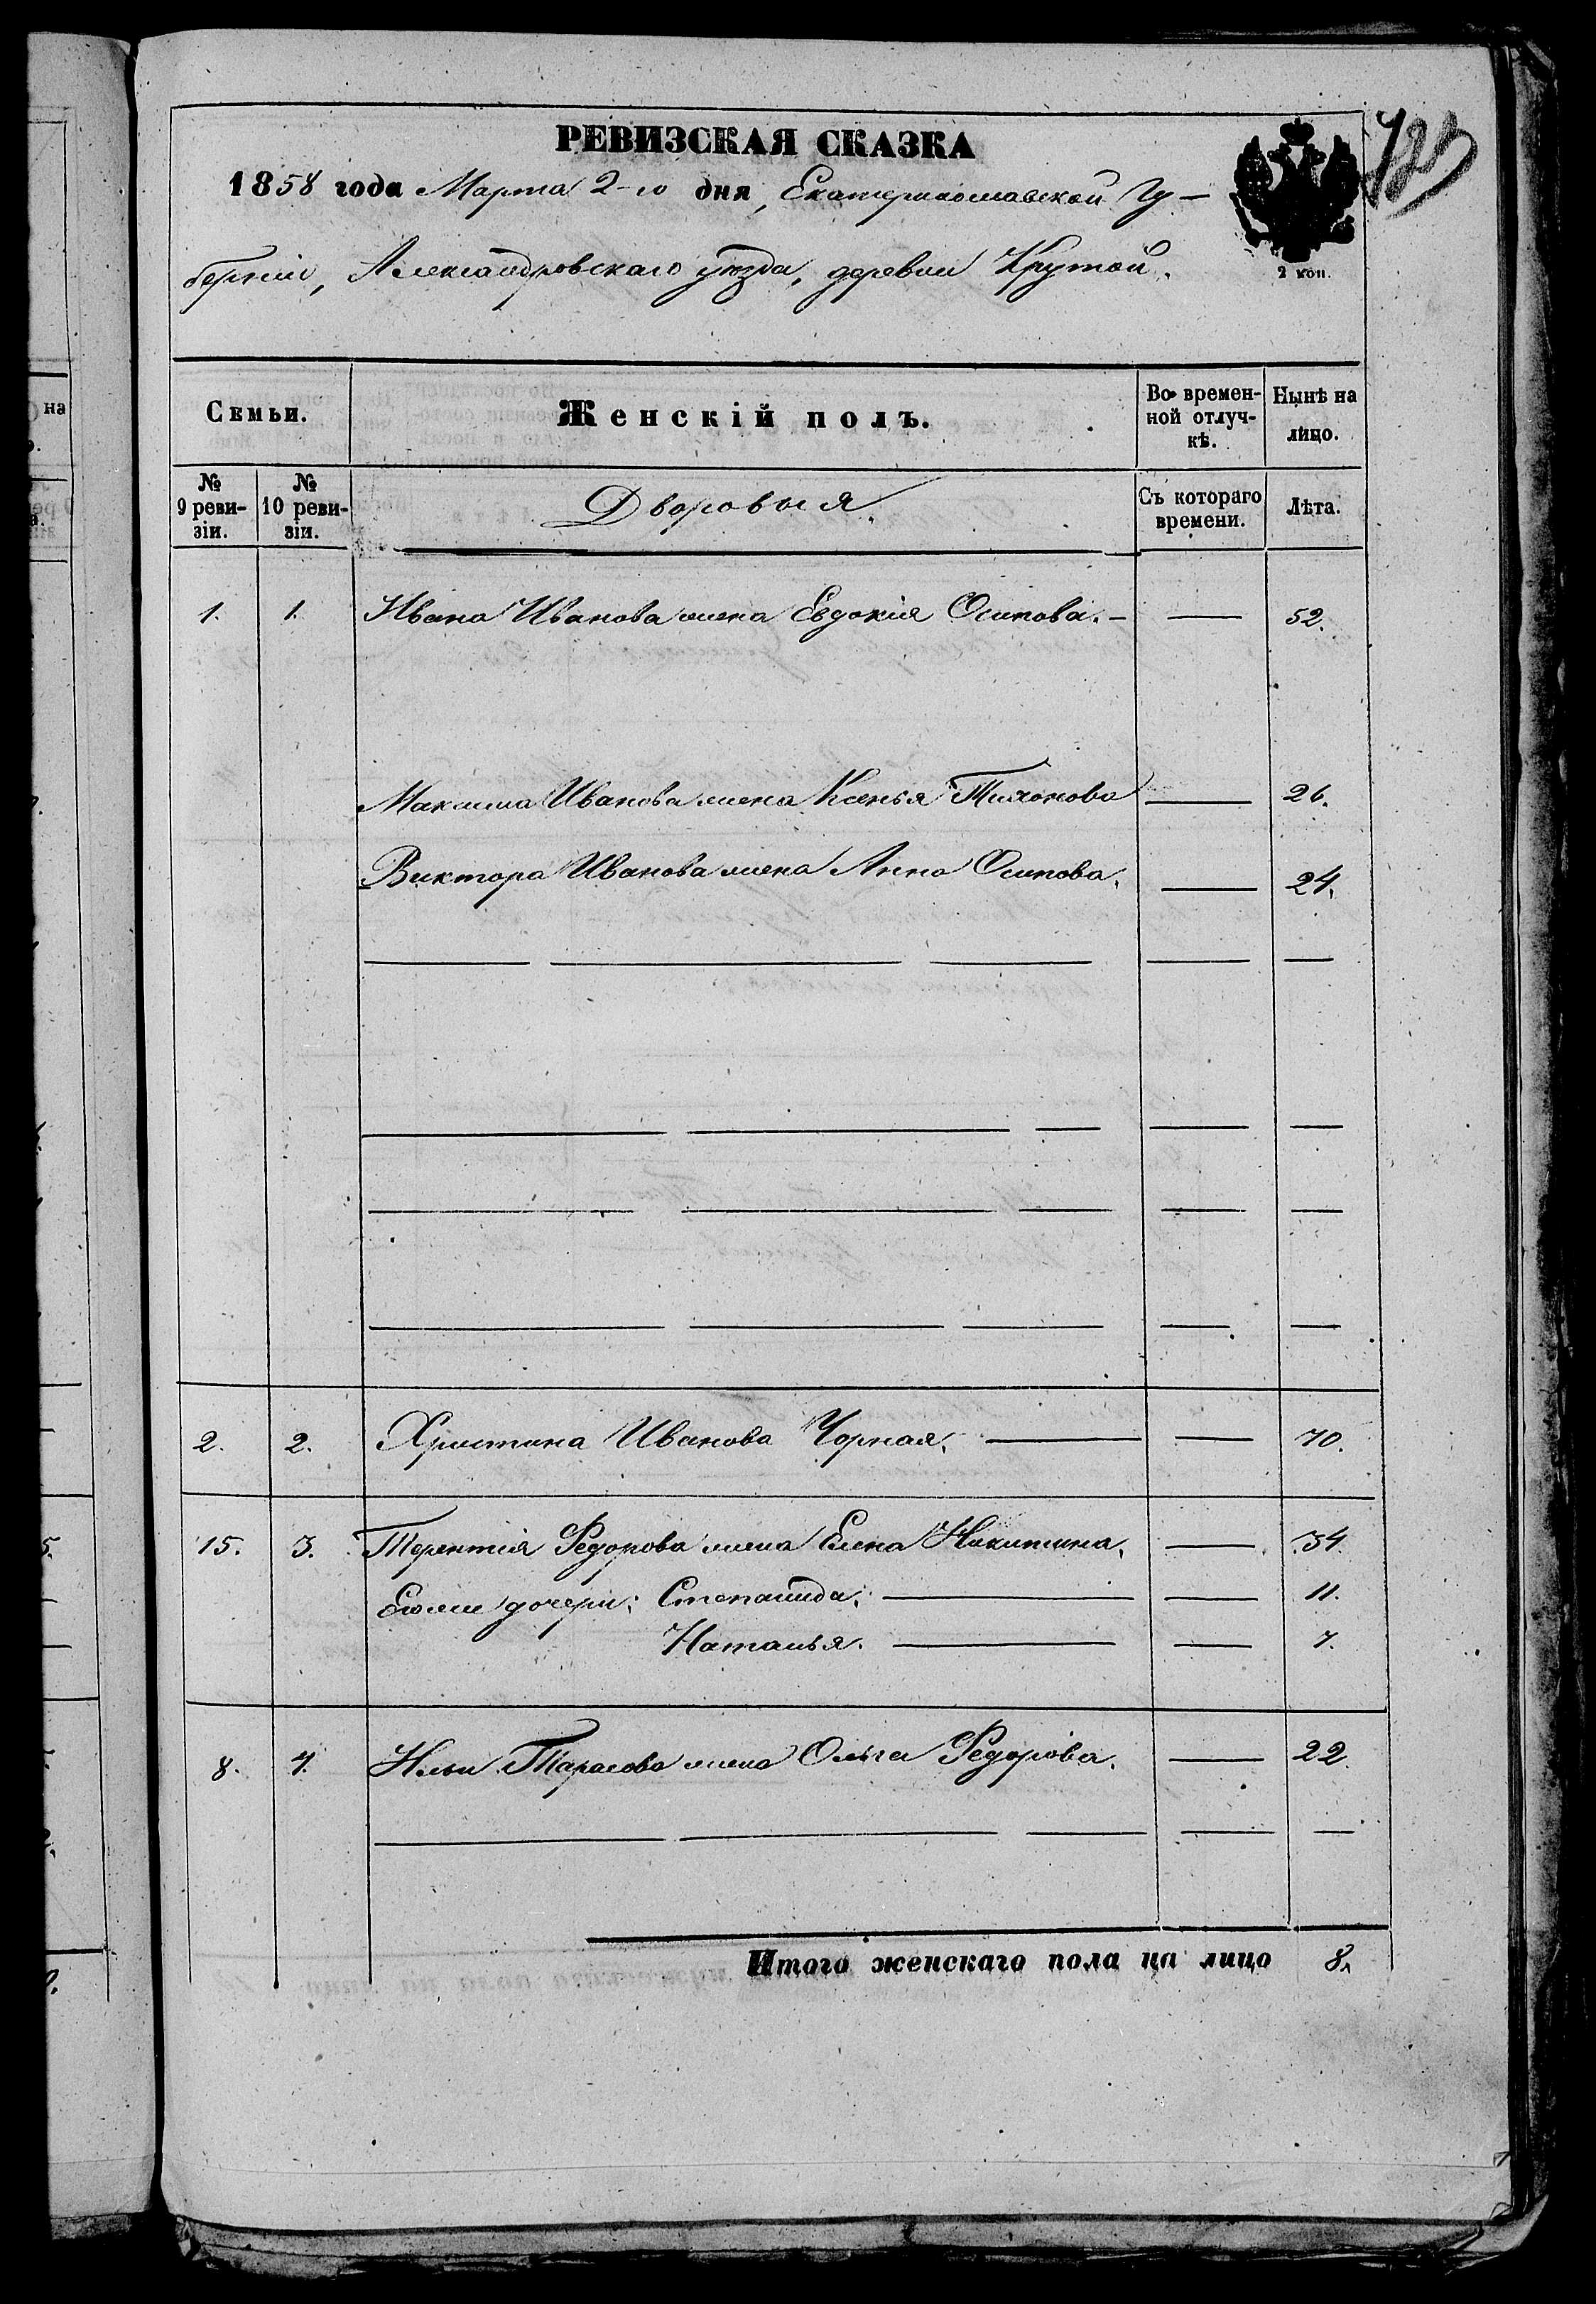 РЕВИЗСКАЯ СКАЗКА
1858 года Марта 2-го дня, Екатеринославской Гу-
берніи, Александровскаго уѣзда, деревни Крутой.
2 коп.
725
Семьи.
Женскій полъ.
Во времен-
ной отлуч-
кѣ.
Нынѣ на
лицо.
№
9 реви-
зіи.
№
10 реви-
зіи.
Дворовыя.
Съ котораго
времени.
Лѣта.
1. 1. Ивана Иванова жена Евдокія Осипова. — — 52.
Максима Иванова жена Ксенья Тихонова — 26.
Виктора Иванова жена Анна Осипова. — 24.
2. 2. Христина Иванова Чорная. — — 70.
15. 3. Терентія Федорова жена Елена Никитина. — 34.
Ихъ дочери: Степанида; — — 11.
Наталья. — — 7.
8. 4. Ильи Тарасова жена Ольга Федорова. — 22.
Итого женскаго пола на лицо 8.
на